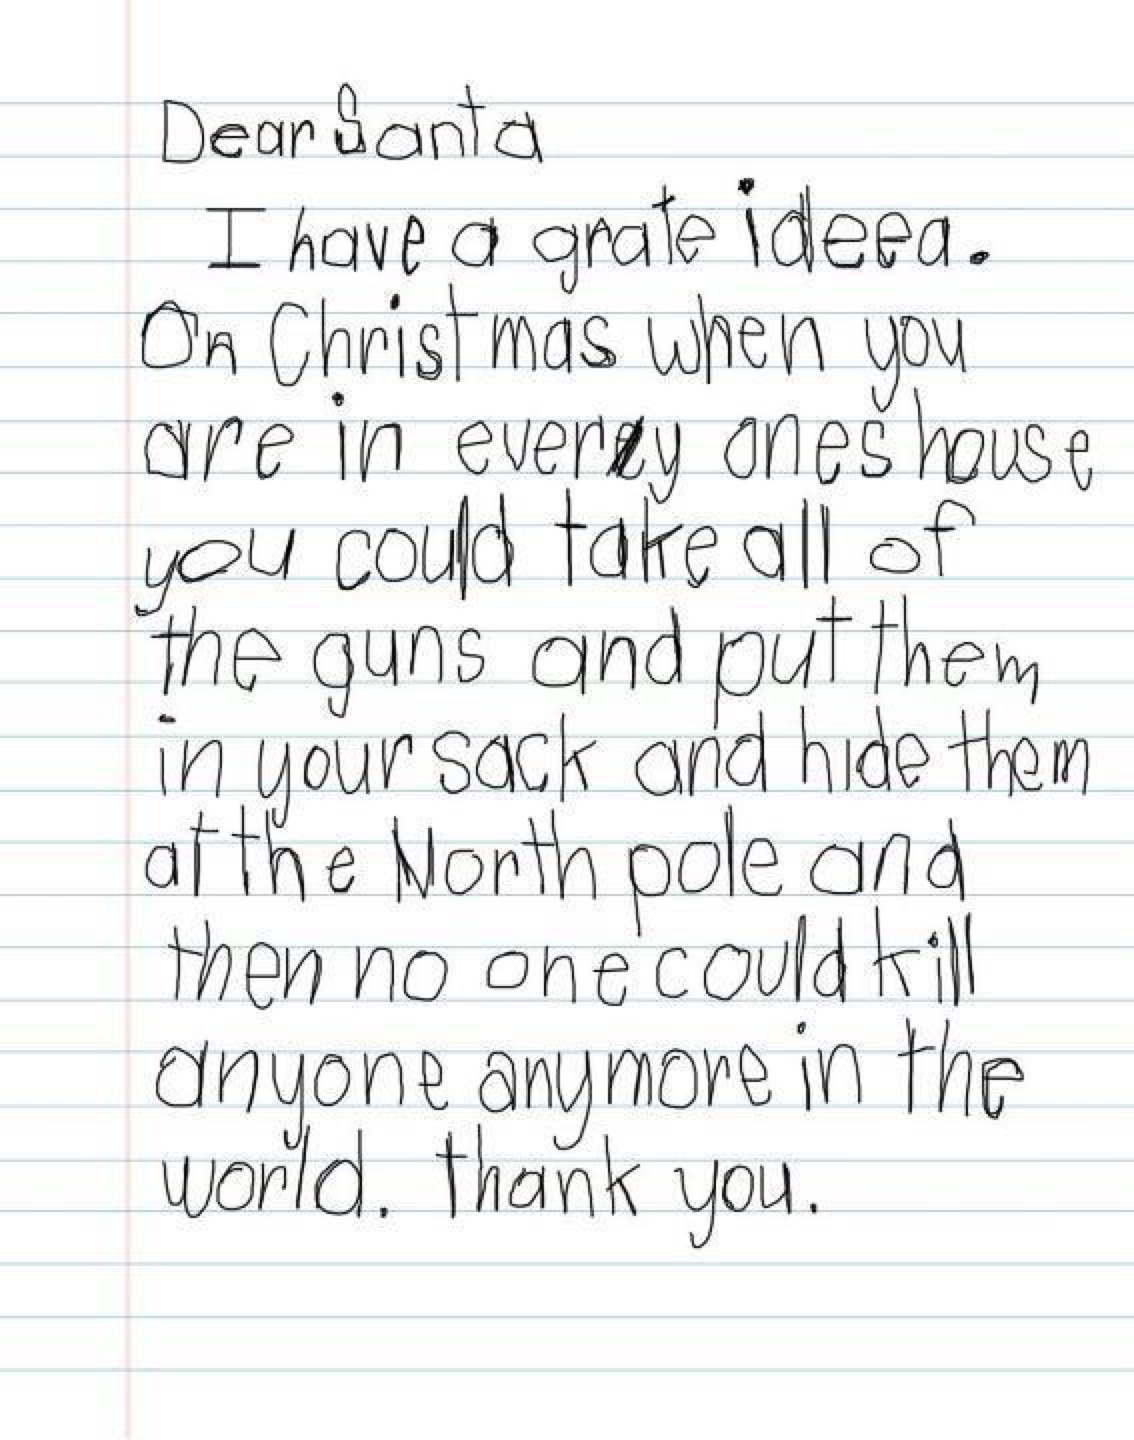 Dear Santa
I have a grate ideea.
On Christmas when you
are in everey ones house
you could take all of
the guns and put them
in your sack and hide them
at the North pole and
then no one could kill
anyone anymore in the
world. thank you.